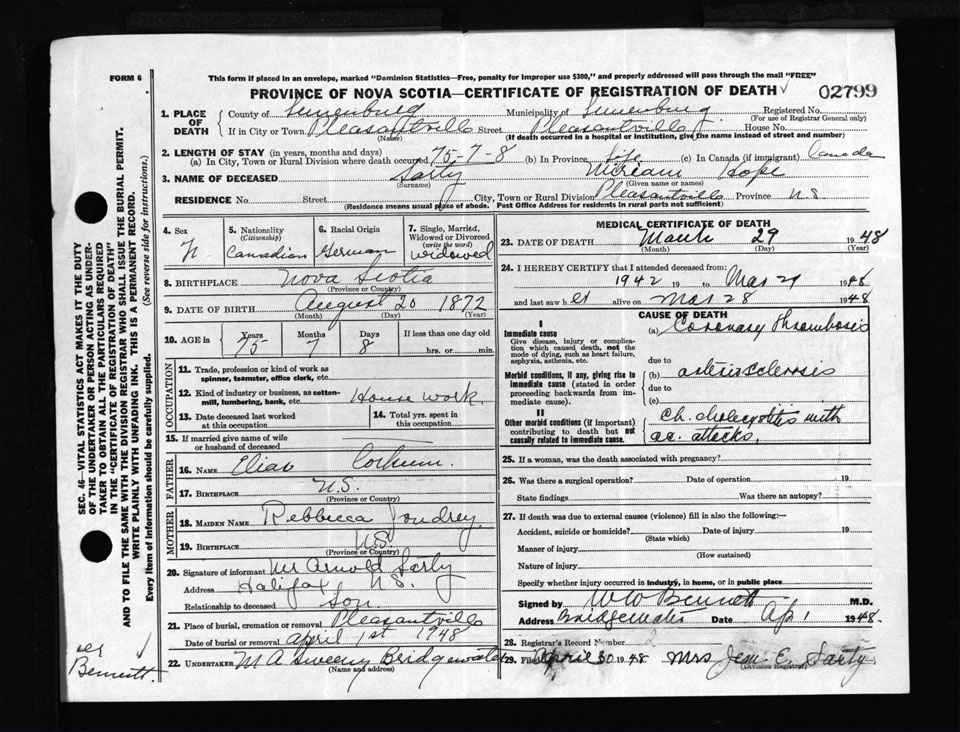 FORM 6
This form if placed in an envelope, marked "Dominion Statistics—Free, penalty for improper use $300," and properly addressed will pass through the mail "FREE"
PROVINCE OF NOVA SCOTIA—CERTIFICATE OF REGISTRATION OF DEATH
02799
1. PLACE OF DEATH County of Lunenburg Municipality of Lunenburg Registered No.
(For use of Registrar General only)
If in City or Town Pleasantville Street Pleasantville House No.
(Name) (If death occurred in a hospital or institution, give the name instead of street and number)
2. LENGTH OF STAY (in years, months and days)
(a) In City, Town or Rural Division where death occurred 75-7-8 (b) In Province Life (c) In Canada (if immigrant) Canada
3. NAME OF DECEASED Sarty Miriam Hope
(Surname) (Given name or names)
RESIDENCE No. Street City, Town or Rural Division Pleasantville Province N.S
(Residence means usual place of abode. Post Office Address for residents in rural parts not sufficient)
4. Sex 5. Nationality (Citizenship) 6. Racial Origin 7. Single, Married, Widowed or Divorced (write the word)
Canadian German Widowed
8. BIRTHPLACE Nova Scotia
(Province or Country)
9. DATE OF BIRTH August 20 1872
(Month) (Day) (Year)
10. AGE in Years Months Days If less than one day old
75 7 8 hrs. or min.
OCCUPATION
11. Trade, profession or kind of work as spinner, teamster, office clerk, etc.
12. Kind of industry or business, as cotton-mill, lumbering, bank, etc. House work.
13. Date deceased last worked at this occupation
14. Total yrs. spent in this occupation
15. If married give name of wife or husband of deceased
FATHER
16. NAME Elias Corkum.
17. BIRTHPLACE N.S.
(Province or Country)
MOTHER
18. MAIDEN NAME Rebbecca Joudrey.
19. BIRTHPLACE NS
(Province or Country)
20. Signature of informant Mr Arnold Sarty
Address Halifax N.S.
Relationship to deceased Son.
21. Place of burial, cremation or removal Pleasantville
Date of burial or removal April 1st 1948
22. UNDERTAKER M A Sweeny Bridgewater
(Name and address)
MEDICAL CERTIFICATE OF DEATH
23. DATE OF DEATH March 29 1948
(Month) (Day) (Year)
24. I HEREBY CERTIFY that I attended deceased from:
1942 19 to Mar 29 1948
and last saw her alive on Mar 28 1948
CAUSE OF DEATH
I
Immediate cause
Give disease, injury or complication which caused death, not the mode of dying, such as heart failure, asphyxia, asthenia, etc.
(a) Coronary Thrombosis
due to
Morbid conditions, if any, giving rise to immediate cause (stated in order proceeding backwards from immediate cause).
(b) arteriosclerosis
due to
(c)
II
Other morbid conditions (if important) contributing to death but not causally related to immediate cause.
Ch. cholecystitis with
ac. attacks.
25. If a woman, was the death associated with pregnancy?
26. Was there a surgical operation? Date of operation 19
State findings Was there an autopsy?
27. If death was due to external causes (violence) fill in also the following:—
Accident, suicide or homicide? Date of injury 19
(State which)
Manner of injury
(How sustained)
Nature of injury
Specify whether injury occurred in industry, in home, or in public place
Signed by W W Bennett M.D.
Address Bridgewater Date Ap 1 1948.
28. Registrar's Record Number
29. Filed April 30 1948 Mrs E. Sarty
(Division Registrar)
SEC. 46—VITAL STATISTICS ACT MAKES IT THE DUTY
OF THE UNDERTAKER OR PERSON ACTING AS UNDER-
TAKER TO OBTAIN ALL THE PARTICULARS REQUIRED
IN THE "CERTIFICATE OF REGISTRATION OF DEATH"
AND TO FILE THE SAME WITH THE DIVISION REGISTRAR WHO SHALL ISSUE THE BURIAL PERMIT.
WRITE PLAINLY WITH UNFADING INK. THIS IS A PERMANENT RECORD.
Every item of information should be carefully supplied. (See reverse side for instructions.)
Bennett